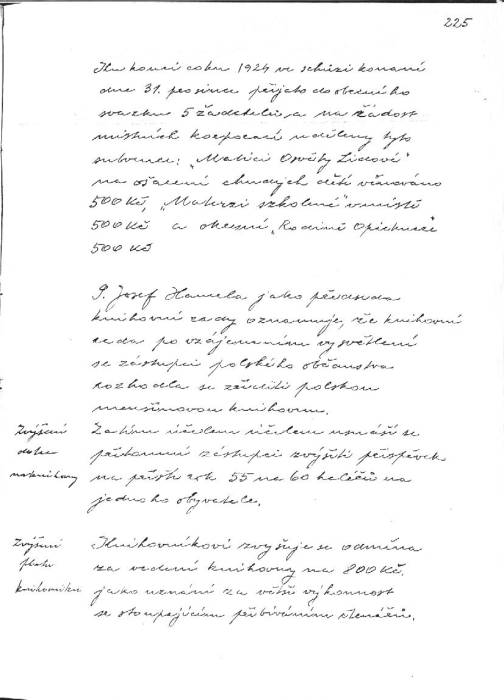 225
Ku konci roku 1924 ve schůzi konané
dne 31. prosince přijato do obecního
svazku 5 žadatelů, a na žádost
místních korporací uděleny tyto
subvence: „Matici Osvěty Lidové"
na ošacení chudých dětí věnováno
500 Kč, „Mateřzi szkolené" v místě
500 Kč a okresní „Rodině Opiekuńczé"
500 Kč
P. Josef Hamela jako předseda
knihovní rady oznamuje, že knihovní
rada po vzájemném vysvětlení
se zástupci polského občanstva
rozhodla se zříditi polskou
menšinovou knihovnu.
Zvýšení
dotace
na knihovny
Za tím účelem účelem usnáší se
přítomní zástupci zvýšiti příspěvek
na příští rok 55 na 60 haléřů na
jednoho obyvatele.
Zvýšení
platu
knihovníka
Knihovníkovi zvyšuje se odměna
za vedení knihovny na 800 Kč.
jako uznání za větší výkonnost
se stoupajícím přibýváním čtenářů.